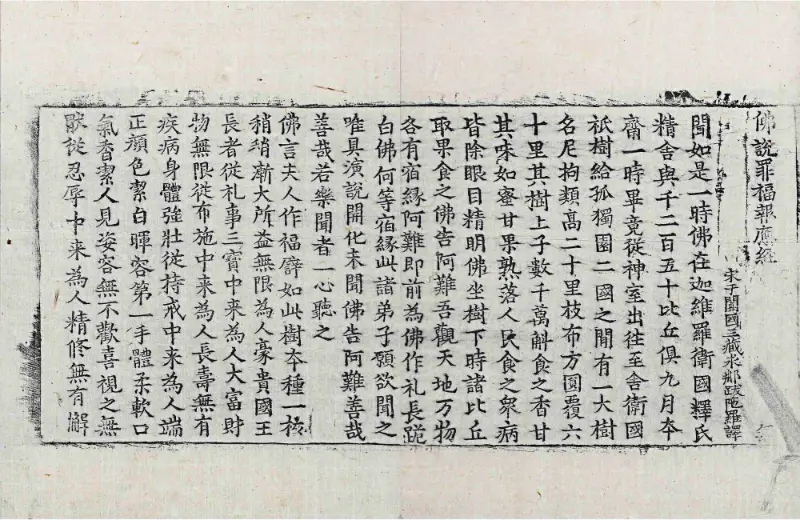 佛說罪福報應經
宋于闐國三藏求那跋陁羅譯
聞如是一時佛在迦維羅衛國釋氏
精舍與千二百五十比丘俱九月夲
齋一時畢竟從神室出往至舍衛國
祇樹給孤獨園二國之閒有一大樹
名尼拘類高二十里枝布方圓覆六
十里其樹上子數千萬斛食之香甘
其味如蜜甘果熟落人民食之衆病
皆除眼目精明佛坐樹下時諸比丘
取果食之佛告阿難吾觀天地万物
各有宿緣阿難即前為佛作礼長跪
白佛何等宿緣此諸弟子願欲聞之
唯具演說開化未聞佛告阿難善哉
善哉若樂聞者一心聽之
佛言夫人作福譬如此樹夲種一核
稍稍漸大所益無限為人豪貴國王
長者從礼事三寶中来為人大富財
物無限從布施中来為人長壽無有
疾病身體強壯從持戒中来為人端
正顏色㓗白暉容第一手體柔軟口
氣香㓗人見姿容無不歡喜視之無
猒從忍辱中来為人精修無有懈